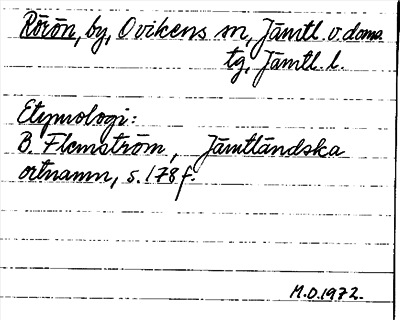 Rörön, by, Ovikens sn, Jämtl. v. doms.
tg, Jämtl. l.
Etymologi:
B. Flemström, Jämtländska
ortnamn, s. 178 f.
M.D. 1972.